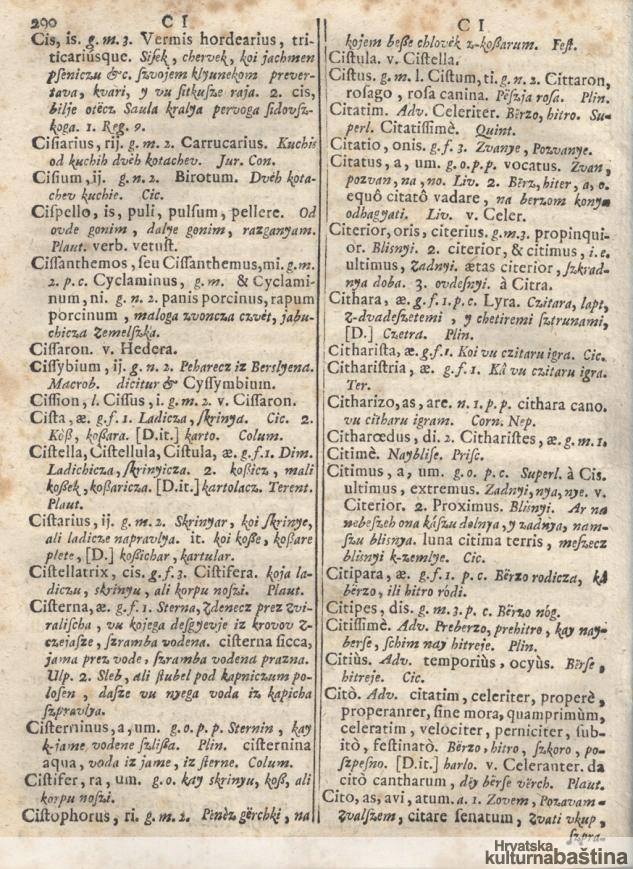 290
C I
Cis, is. g. m. 3. Vermis hordearius, tri-
ticariúsque. Sisek, chervek, koi jachmen
pſeniczu &c. ſzvojem klyunekom prever-
tava, kvari, y vu ſitkusze raja. 2. cis,
bilje otëcz Saula kralya pervoga ſidovſz-
koga. 1. Reg. 9.
Ciſiarius, rij. g. m. 2. Carrucarius. Kuchiſs
od kuchih dvéh kotachev. Jur. Con.
Ciſium, ij. g. n. 2. Birotum. Dvéh kota-
chev kuchie. Cic.
Ciſpello, is, puli, pulſum, pellere. Od
ovde gonim, dalye gonim, razganyam.
Plaut. verb. vetuſt.
Ciſſanthemos, ſeu Ciſſanthemus, mi. g. m.
2. p. c. Cyclaminus, g. m. & Cyclami-
num, ni. g. n. 2. panis porcinus, rapum
porcinum, maloga zvoncza czvét, jabu-
chicza zemelſzka.
Ciſſaron. v. Hedera.
Ciſſybium, ij. g. n. 2. Peharecz iz Berslyena.
Macrob. dicitur & Cyſſymbium.
Ciſſion, l. Ciſſus, i. g. m. 2. v. Ciſſaron.
Ciſta, æ. g. f. 1. Ladicza, ſkrinya. Cic. 2.
Kòß, koßara. [D. it.] karto. Colum.
Ciſtella, Ciſtellula, Ciſtula, æ. g. f. 1. Dim.
Ladichicza, ſkrinyicza. 2. koßicz, mali
koßek, koßaricza. [D. it.] kartolacz. Terent.
Plaut.
Ciſtarius, ij. g. m. 2. Skrinyar, koi ſkrinye,
ali ladicze napravlya. it. koi koße, koßare
plete, [D.] koßichar, kartular.
Ciſtellatrix, cis. g. f. 3. Ciſtifera. koja la-
diczu, skrinyu, ali korpu noszi. Plaut.
Ciſterna, æ. g. f. 1. Sterna, Zdenecz prez zvi-
raliſcha, vu kojega desgyevje iz krovov z-
czejasze, ſzramba vodena. ciſterna ſicca,
jama prez vode, ſzramba vodena prazna.
Ulp. 2. Sleb, ali ſtubel pod kapniczum po-
loſen, dasze vu nyega voda iz kapicha
ſzpravlya.
Ciſterninus, a, um. g. o. p. p. Sternin, kay
k-jame vodene szlißa. Plin. ciſternina
aqua, voda iz jame, iz ſterne. Colum.
Ciſtifer, ra, um. g. o. kay skrinyu, koß, ali
korpu noszi.
Ciſtophorus, ri. g. m. 2. Pénèz gërchki, na
C I
kojem beße chlovèk z-koßarum. Feſt.
Ciſtula. v. Ciſtella.
Ciſtus. g. m. l. Ciſtum, ti. g. n. 2. Cittaron,
roſago, roſa canina. Pèszja roſa. Plin.
Citatim. Adv. Celeriter. Bërzo, hitro. Su-
perl. Citatiſſimè. Quint.
Citatio, onis. g. f. 3. Zvanye, Pozvanye.
Citatus, a, um. g. o. p. p. vocatus. Zvan,
pozvan, na, no. Liv. 2. Bërz, hiter, a, o.
equô citatô vadare, na berzom konyu
odhagyati. Liv. v. Celer.
Citerior, oris, citerius. g. m. 3. propinqui-
or. Blisnyi. 2. citerior, & citimus, i. e.
ultimus, Zadnyi. ætas citerior, ſzkrad-
nya doba. 3. ovdeſnyi. à Citra.
Cithara, æ. g. f. 1. p. c. Lyra. Czitara, lapt,
Z-dvadeſzetemi, y chetiremi ſztrunami,
[D.] Czetra. Plin.
Citharista, æ. g. f. 1. Koi vu czitaru igra. Cic.
Cithariſtria, æ. g. f. 1. Kâ vu czitaru igra.
Ter.
Citharizo, as, are. n. 1. p. p. cithara cano.
vu citharu igram. Corn. Nep.
Citharœdus, di. 2. Cithariſtes, æ. g. m. 1.
Citimè. Nayblise. Priſc.
Citimus, a, um. g. o. p. c. Superl. à Cis.
ultimus, extremus. Zadnyi, nya, nye. v.
Citerior. 2. Proximus. Blisnyi. Ar na
nebeſzeh ona káſzu dolnya, y zadnya, nam-
ſzu blisnya. luna citima terris, meſzecz
blisnyi k-zemlye. Cic.
Citipara, æ. g. f. 1. p. c. Bërzo rodicza, ká
bërzo, ili hitro ródi.
Citipes, dis. g. m. 3. p. c. Bërzo nóg.
Citiſſimè. Adv. Preberzo, prehitro, kay nay-
berſe, ſchim nay hitreje. Plin.
Citiùs. Adv. temporiùs, ocyùs. Bërſe,
hitreje. Cic.
Citò. Adv. citatim, celeriter, properè,
properanrer, ſine mora, quamprimùm,
celeratim, velociter, perniciter, ſub-
itò, feſtinatò. Bërzo, hitro, ſzkoro, po-
ſzpeſno. [D. it.] harlo. v. Celeranter. da
citò cantharum, diy bërſe vërch. Plaut.
Cito, as, avi, atum. a. 1. Zovem, Pozavam-
Zvalſzem, citare ſenatum, Zvati vkup,
ſzpra-
Hrvatska
kulturnabaština